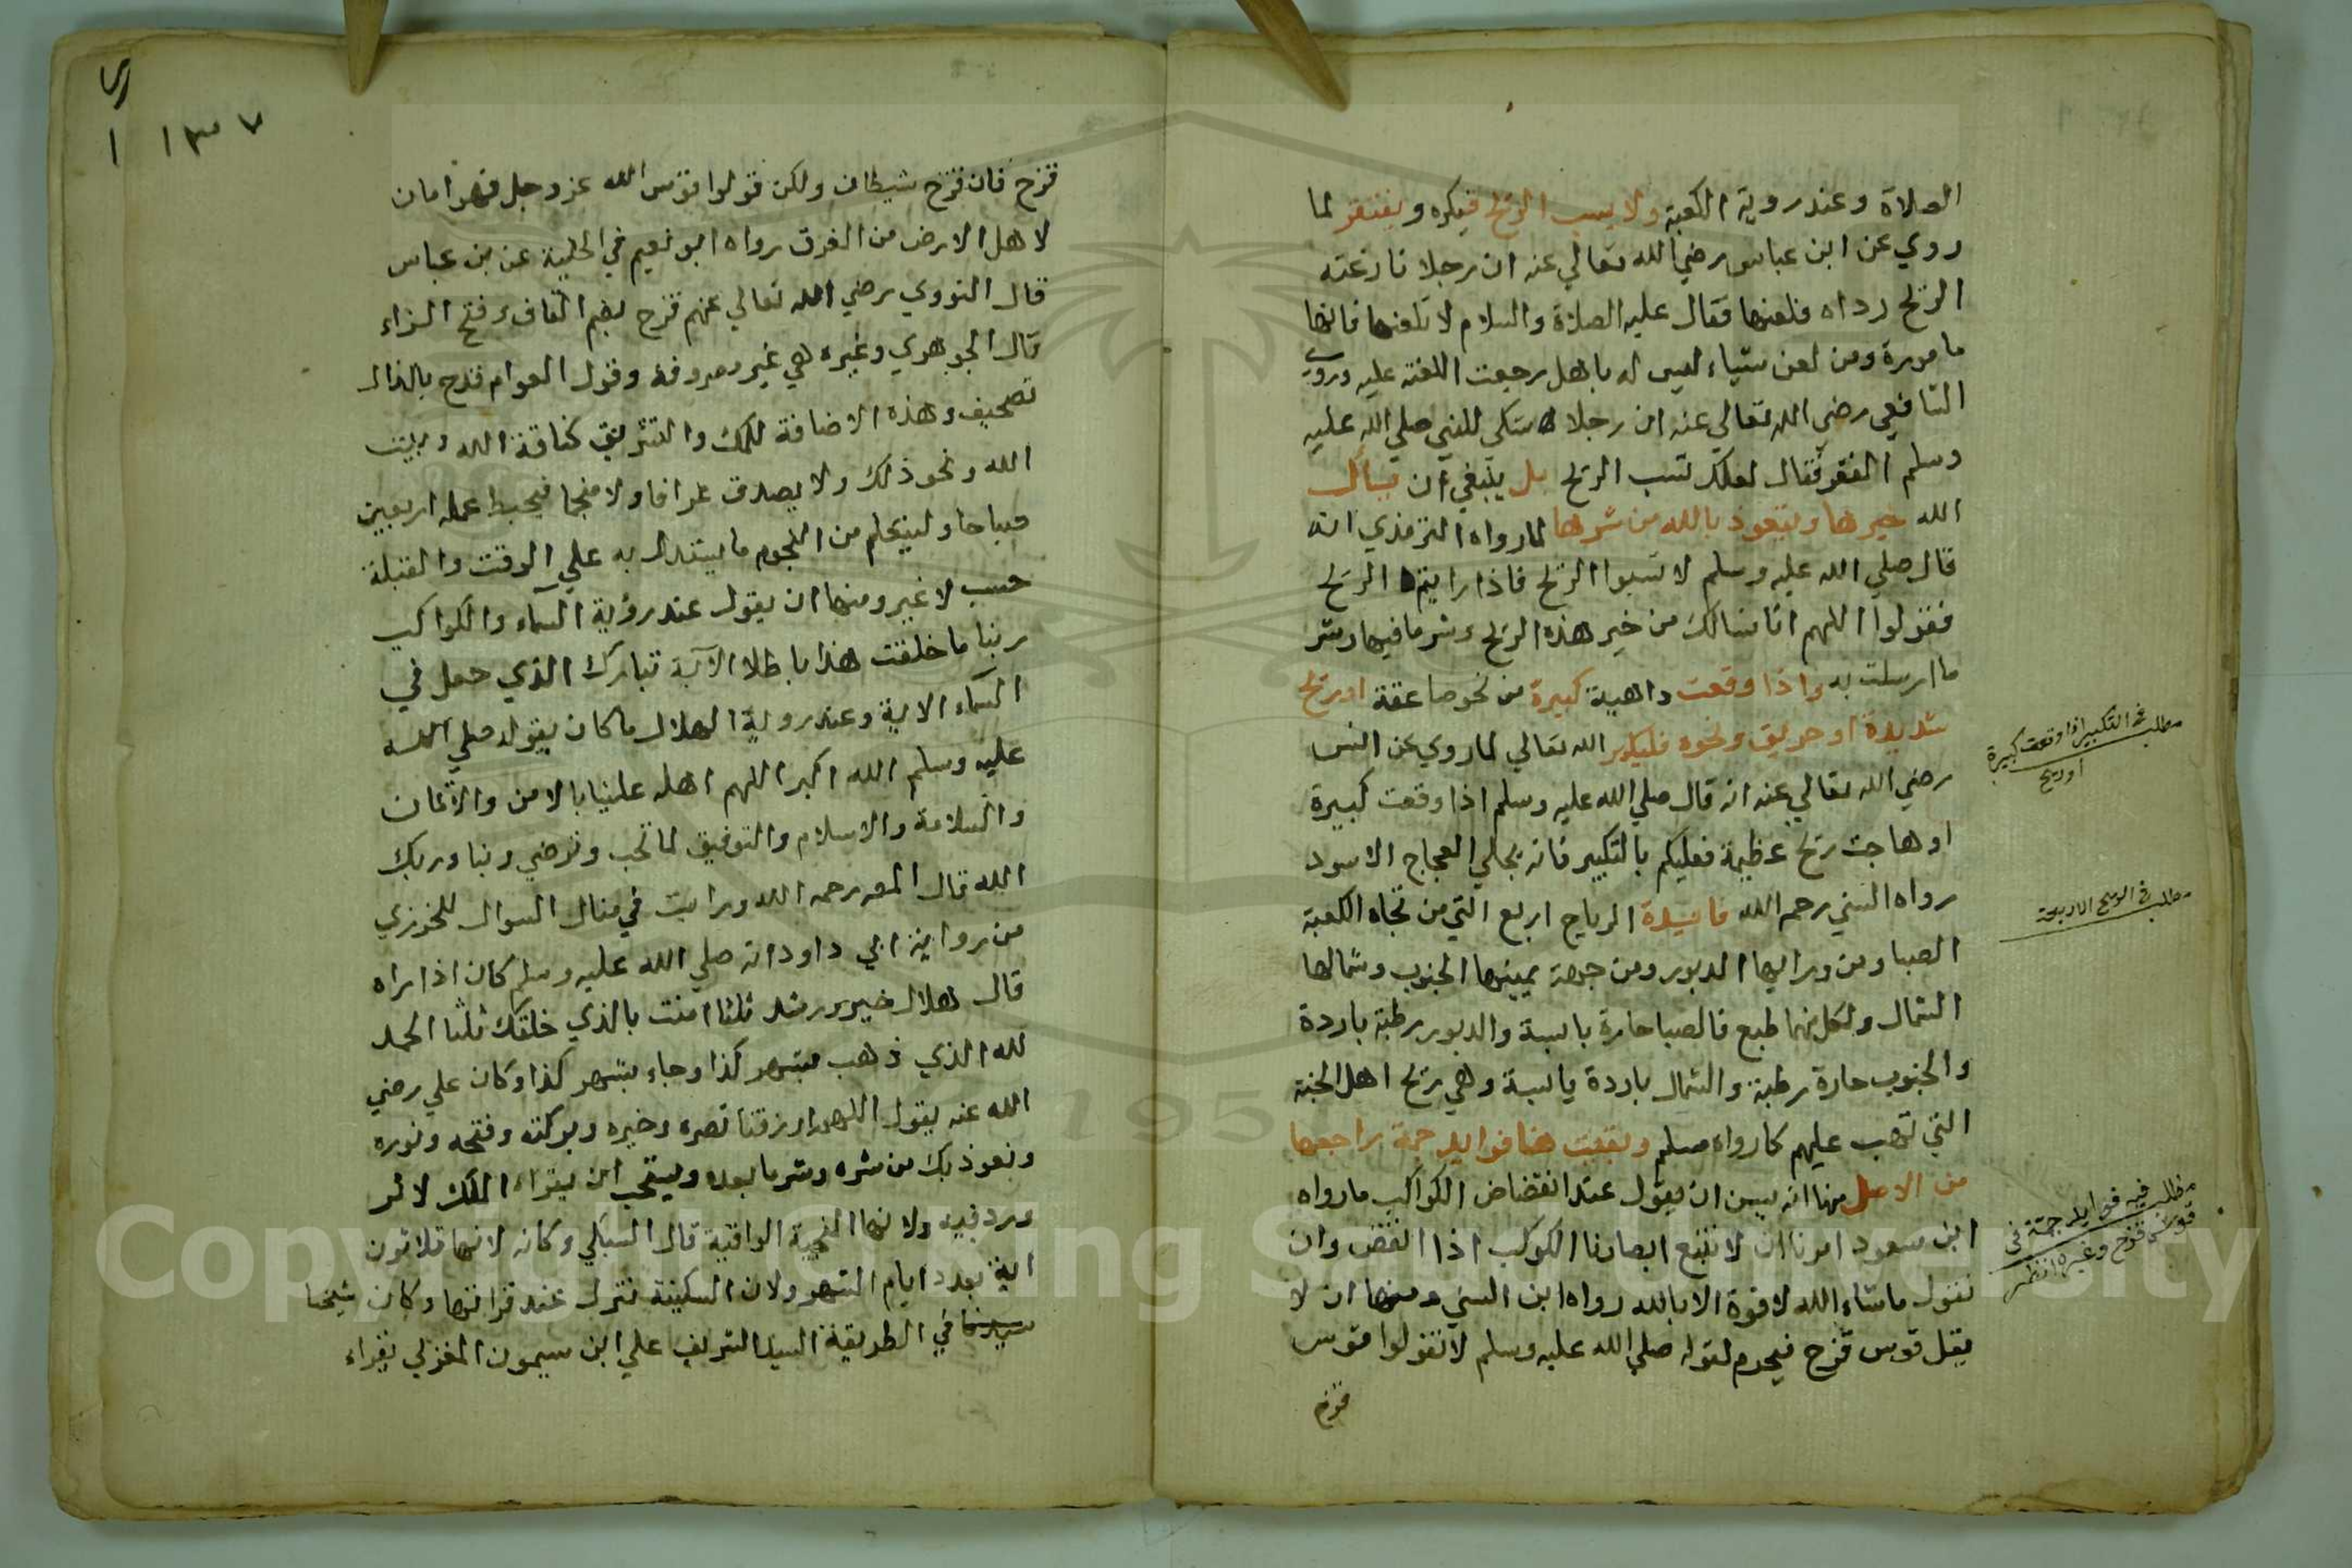 الصلاة وعند روية الكعبة ولا يسب الريح فيكره ويفتقر لما
روي عن ابن عباس رضي الله تعالي عنه ان رجلا نازعته
الريح رداه فلعنها فقال عليه الصلاة والسلام لا تلعنها فانها
مامورة ومن لعن شياء ليس له باهل رجعت اللعنة عليه وروي
الشافعي رضي الله تعالي عنه ان رجلا شكي للنبي صلي الله عليه
وسلم الفقر فقال لعلك تسب الريح بل ينبغي ان يسأل
الله خيرها ويتعوذ بالله من شرها لما رواه الترمذي انه
قال صلي الله عليه وسلم لا تسبوا الريح فاذا رايتم الريح
فقولوا اللهم انا نسالك من خير هذه الريح وشر ما فيها وشر
ما ارسلت به واذا وقعت داهية كبيرة من نحو صاعقة او ريح
شديدة او حريق ونحوه فليكبر الله تعالي لما روي عن انس
رضي الله تعالي عنه انه قال صلي الله عليه وسلم اذا وقعت كبيرة
او هاجت ريح عظيمة فعليكم بالتكبير فانه يجلي العجاج الاسود
رواه السني رحمه الله فايدة الرياح اربع التي من تجاه الكعبة
الصبا ومن ورايها الدبور ومن جهة يمينها الجنوب وشمالها
الشمال ولكل منها طبع فالصبا حارة يابسة والدبور رطبة باردة
والجنوب حارة رطبة والشمال باردة يابسة وهي ريح اهل الجنة
التي تهب عليهم كما رواه مسلم وبقيت هنا فوايد جمة راجعها
من الاصل منها انه يسن ان يقول عند انقضاض الكواكب ما رواه
ابن مسعود امرنا ان لا نتبع ابصارنا الكوكب اذا انقض وان
نقول ما شاء الله لا قوة الا بالله رواه ابن السني ومنها ان لا
يقل قوس قزح فيحرم لقوله صلي الله عليه وسلم لا تقولوا قوس
قزح
مطلب في التكبير اذا وقعت كبيرة
او ريح
مطلب في الريح الاربعة
مطلب فيه فوايد جمة في
قوس قزح وغيره انظر
١٣٧
١
قزح فان قزح شيطان ولكن قولوا قوس الله عز وجل فهو امان
لاهل الارض من الغرق رواه ابو نعيم في الحلية عن بن عباس
قال النووي رضي الله تعالي عنهم قزح بضم القاف وفتح الزاء
قال الجوهري وغيره هي غير معروفة وقول العوام قدح بالدال
تصحيف وهذه الاضافة للملك والتشريف كناقة الله وبيت
الله ونحو ذلك ولا يصدق عرافا ولا منجما فيحبط عمله اربعين
صباحا وليتعلم من النجوم ما يستدل به علي الوقت والقبلة
حسب لا غير ومنها ان يقول عند رؤية السماء والكواكب
ربنا ما خلقت هذا باطلا الآية تبارك الذي جعل في
السماء الاية وعند روية الهلال ما كان يقوله صلي الله
عليه وسلم الله اكبر اللهم اهله علينا بالامن والايمان
والسلامة والاسلام والتوفيق لما تحب وترضي ربنا وربك
الله قال المص رحمه الله ورايت في منال السوال للخوزي
من رواية ابي داود انه صلي الله عليه وسلم كان اذا راه
قال هلال خير ورشد ثلثا امنت بالذي خلقك ثلثا الحمد
لله الذي ذهب بشهر كذا وجاء بشهر كذا وكان علي رضي
الله عنه يقول اللهم ارزقنا نصره وخيره وبركته وفتحه ونوره
ونعوذ بك من شره وشر ما بعده ويستحب ان يقراء الملك لاثر
ورد فيه ولانها المنجية الواقية قال السبكي وكانه لانها ثلاثون
اية بعدد ايام الشهر ولان السكينة تنزل عند قراتها وكان شيخنا
في الطريقة السيد الشريف علي ابن ميمون المغربي يقراء